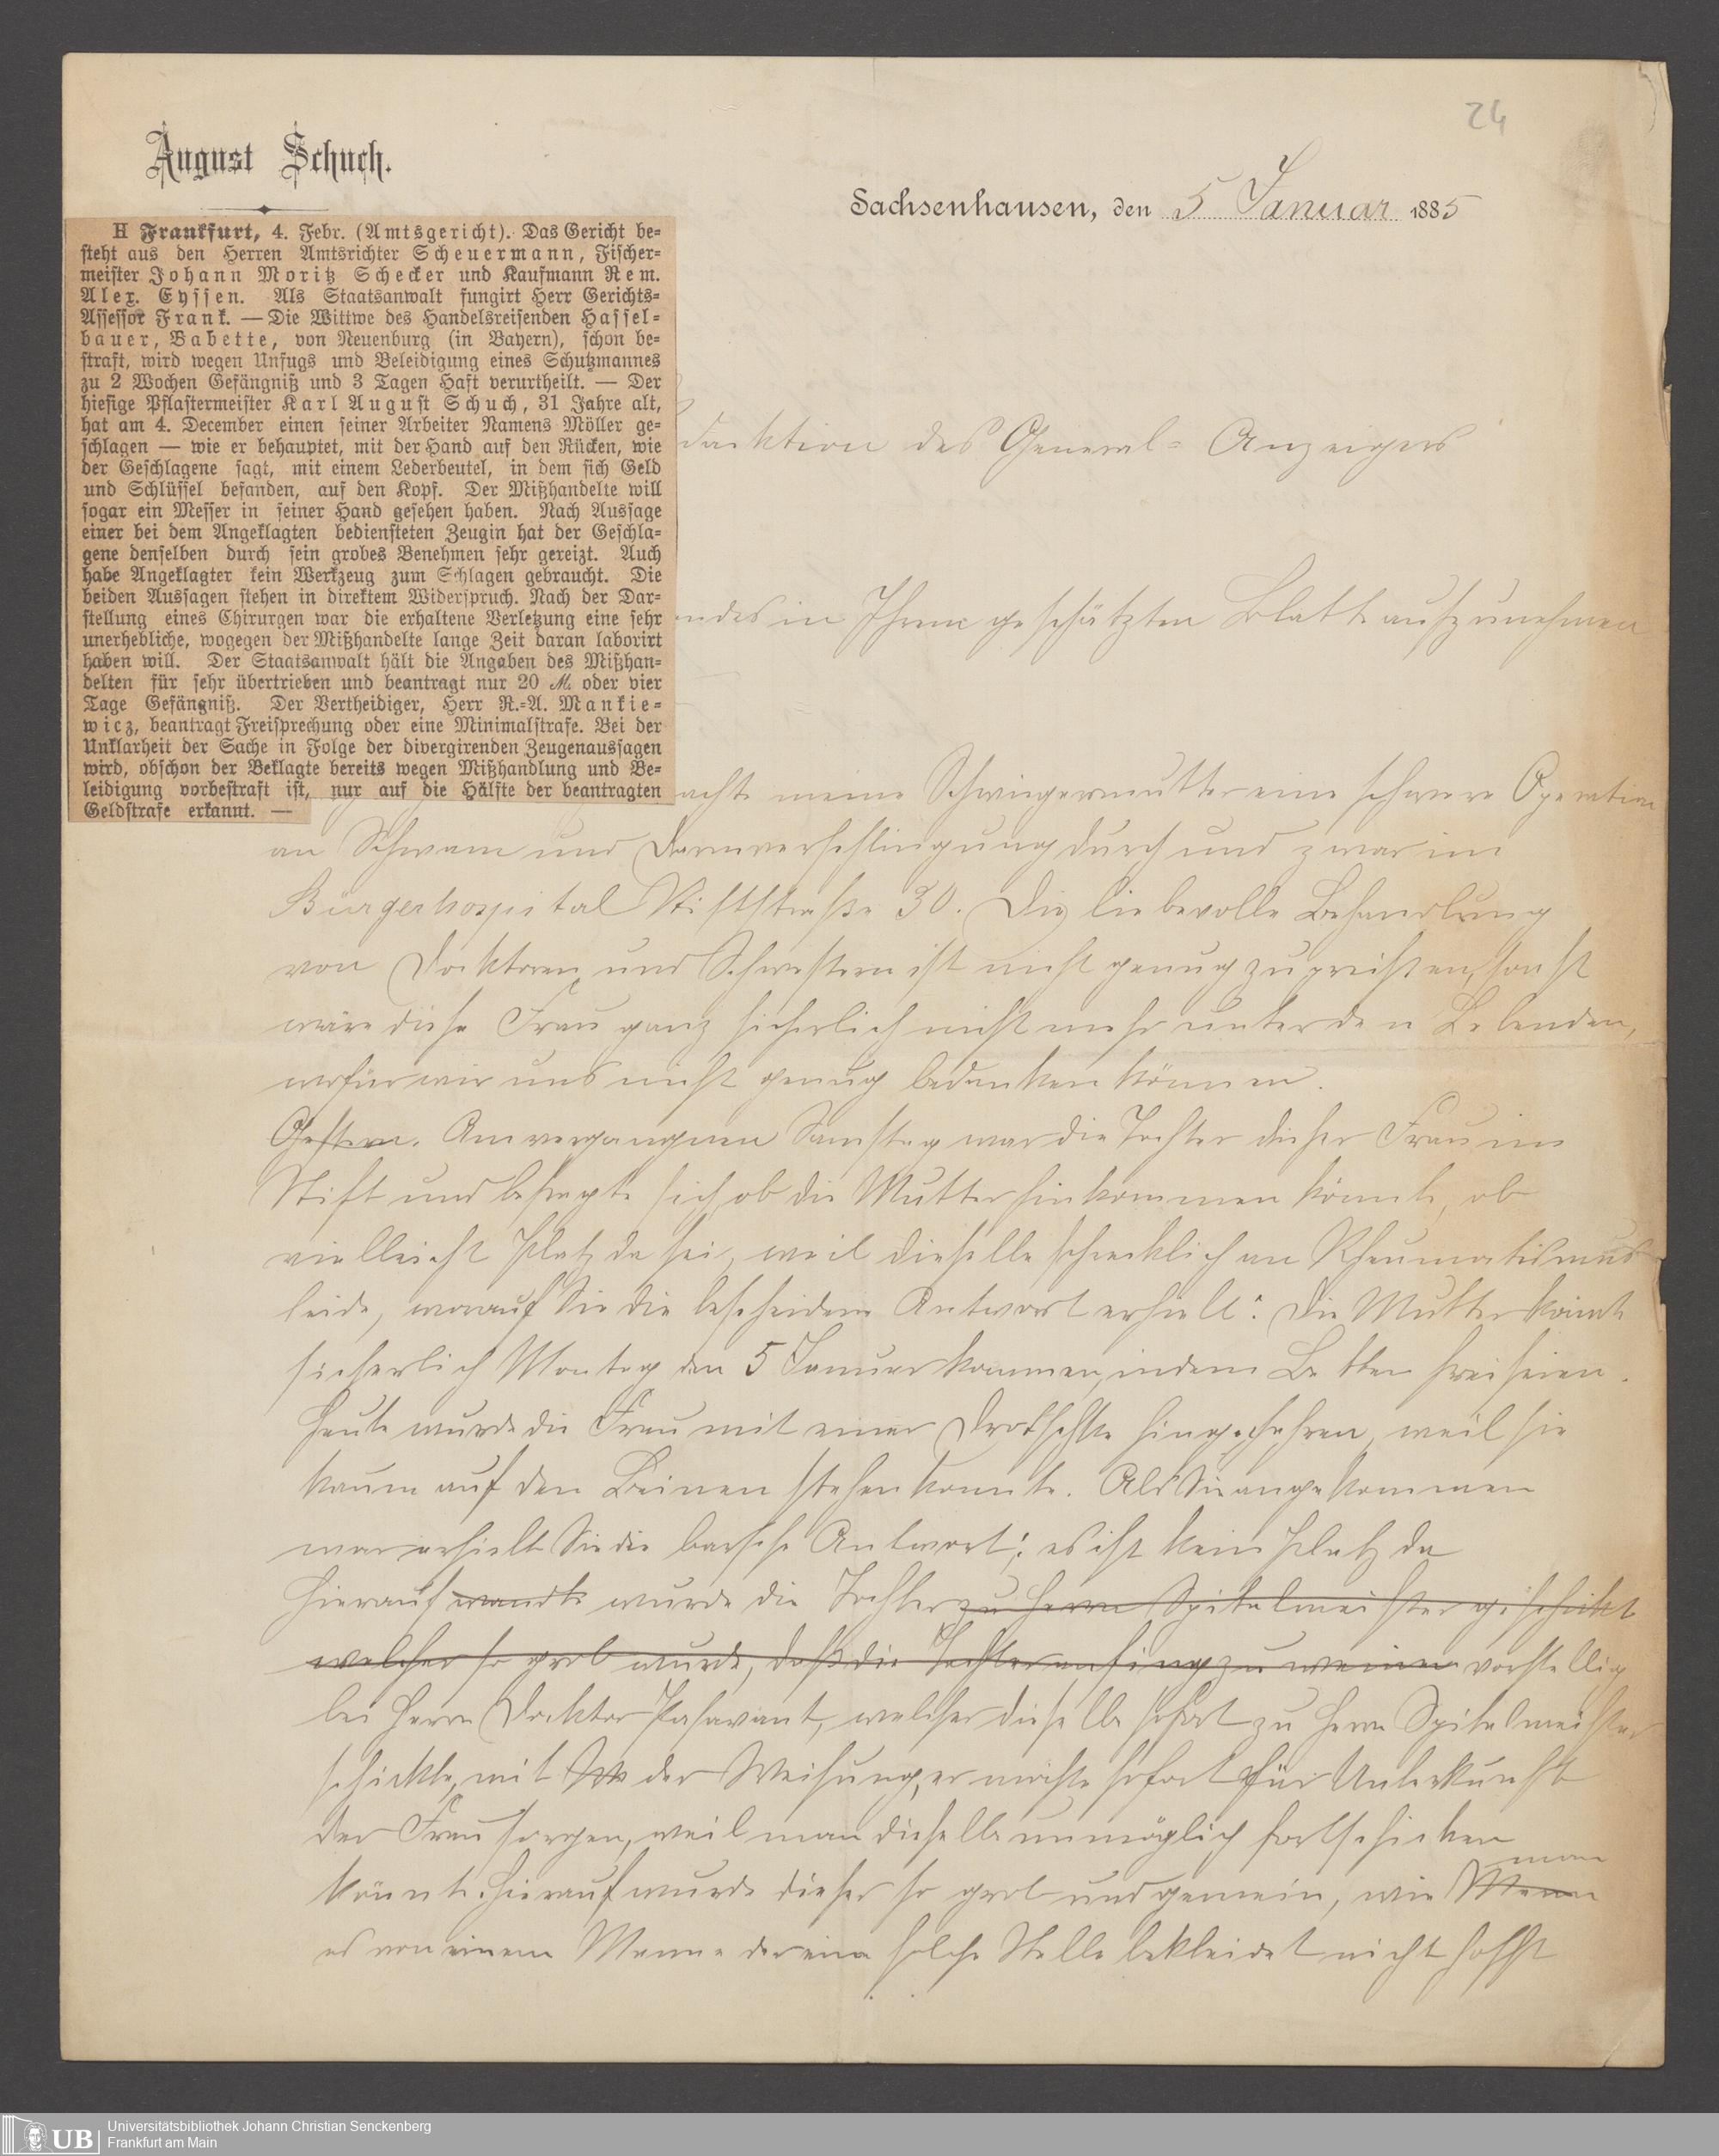 24
August Schuch.
Sachsenhausen, den 5 Januar 1885
H Frankfurt, 4. Febr. (Amtsgericht). Das Gericht be=
steht aus den Herren Amtsrichter Scheuermann, Fischer=
meister Johann Moritz Schecker und Kaufmann Rem.
Alex. Eyssen. Als Staatsanwalt fungirt Herr Gerichts=
Assessor Frank. — Die Wittwe des Handelsreisenden Hassel=
bauer, Babette, von Neuenburg (in Bayern), schon be=
straft, wird wegen Unfugs und Beleidigung eines Schutzmannes
zu 2 Wochen Gefängniß und 3 Tagen Haft verurtheilt. — Der
hiesige Pflastermeister Karl August Schuch, 31 Jahre alt,
hat am 4. December einen seiner Arbeiter Namens Möller ge=
schlagen — wie er behauptet, mit der Hand auf den Rücken, wie
der Geschlagene sagt, mit einem Lederbeutel, in dem sich Geld
und Schlüssel befanden, auf den Kopf. Der Mißhandelte will
sogar ein Messer in seiner Hand gesehen haben. Nach Aussage
einer bei dem Angeklagten bediensteten Zeugin hat der Geschla=
gene denselben durch sein grobes Benehmen sehr gereizt. Auch
habe Angeklagter kein Werkzeug zum Schlagen gebraucht. Die
beiden Aussagen stehen in direktem Widerspruch. Nach der Dar=
stellung eines Chirurgen war die erhaltene Verletzung eine sehr
unerhebliche, wogegen der Mißhandelte lange Zeit daran laborirt
haben will. Der Staatsanwalt hält die Angaben des Mißhan=
delten für sehr übertrieben und beantragt nur 20 M. oder vier
Tage Gefängniß. Der Vertheidiger, Herr R.=A. Mankie=
wicz, beantragt Freisprechung oder eine Minimalstrafe. Bei der
Unklarheit der Sache in Folge der divergirenden Zeugenaussagen
wird, obschon der Beklagte bereits wegen Mißhandlung und Be=
leidigung vorbestraft ist, nur auf die Hälfte der beantragten
Geldstrafe erkannt. —
daktion des General= Anzeigers
ndes in Ihrem geschätzten Blatt aufzunehmen
achte meine Schwiegermutter eine schwere Operation
an Schwam und Darmverschlingung durch und zwar im
Bürgerhospital Stiftstraße 30. Die liebevolle Behandlung
von Docktoren und Schwestern ist nicht genug zu preißen, sonst
wäre diese Frau ganz sicherlich nicht mehr unter den Lebenden,
wofür wir uns nicht genug bedanken können.
Gestern. Am vergangnen Samstag war die Tochter dieser Frau im
Stift und befragte sich, ob die Mutter hinkommen könnte, ob
vielleicht Platz da sei, weil dieselbe schrecklich an Rheumatismus
leide, worauf Sie die bescheidene Antwort erhielt: Die Mutter könnte
sicherlich Montag den 5 Januar kommen, indem Betten frei seien.
Heute wurde die Frau mit einer Drotschke hingefahren, weil sie
kaum auf den Beinen stehen konnte. Als Sie angekommen
war erhielt Sie die barsche Antwort: es ist kein Platz da
Hierauf wandte wurde die Tochter zu Herrn Spitalmeister geschickt
welcher so grob wurde, daß die Tochter anfing zu weinen vorstellig
bei Herrn Docktor Pasavant, welcher dieselbe sofort zu Herrn Spitalmeister
schickte, mit der Weisung, er möchte sofort für Unterkunft
der Frau sorgen, weil man dieselbe unmöglich fortschicken
könnte. Hierauf wurde dieser so grob und gemein, wie Mann man
es von einem Manne der eine solche Stelle bekleidet nicht hofft
Universitätsbibliothek Johann Christian Senckenberg
Frankfurt am Main
UB